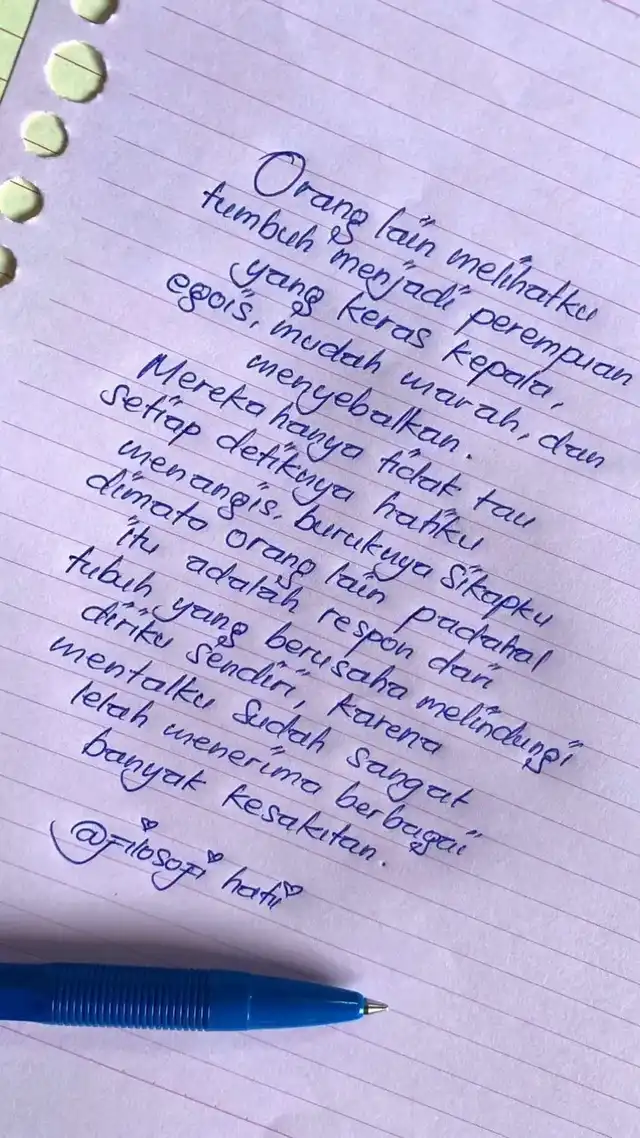 Orang lain melihatku
tumbuh menjadi perempuan
yang keras kepala,
egois, mudah marah, dan
menyebalkan.
Mereka hanya tidak tau
setiap detiknya hatiku
menangis, buruknya sikapku
dimata orang lain padahal
itu adalah respon dari
tubuh yang berusaha melindungi
diriku sendiri, karena
mentalku sudah sangat
lelah menerima berbagai
banyak kesakitan.
@Filosofi hati